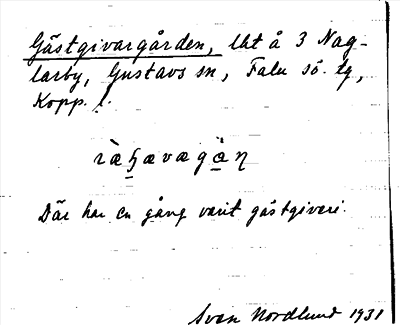 Gästgivargården, lht å 3 Nag-
larby, Gustavs sn, Falu sö. tg,
Kopp. l.
Där har en gång varit gästgiveri.
Sven Nordlund 1931